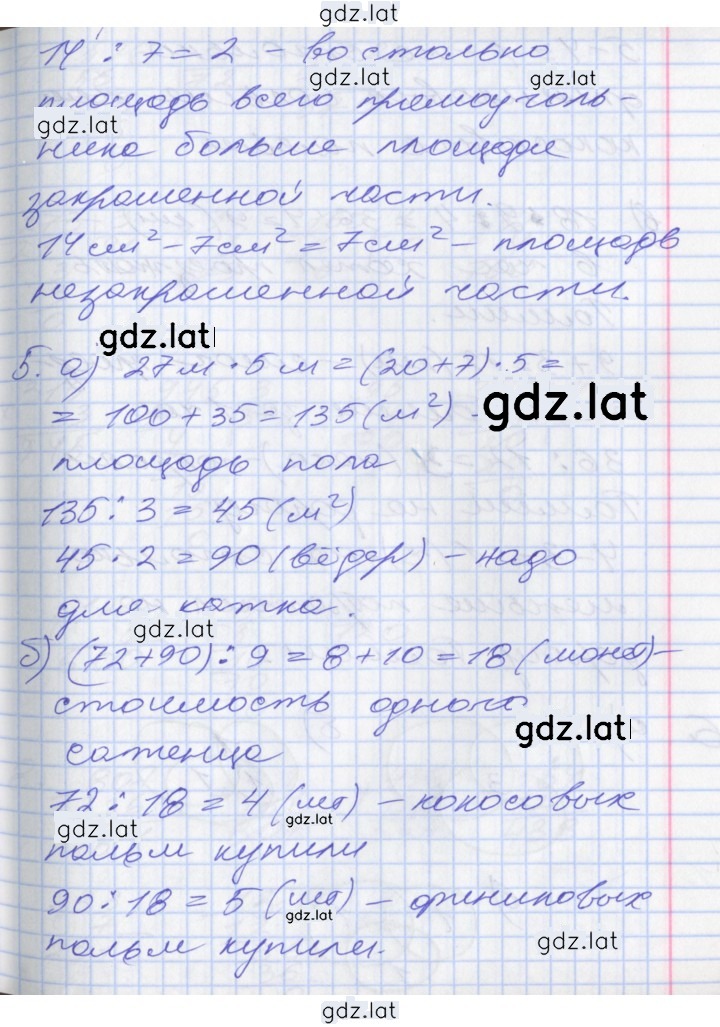 gdz.lat
14 : 7 = 2 - во столько
gdz.lat gdz.lat
площадь всего прямоуголь-
gdz.lat
ника больше площади
закрашенной части.
14см² - 7см² = 7см² - площадь
незакрашенной части.
gdz.lat
5. а) 27м · 5м = (20+7) · 5 =
= 100 + 35 = 135 (м²) -
gdz.lat
площадь пола
135 : 3 = 45 (м²)
45 · 2 = 90 (вёдер) - надо
для катка.
gdz.lat
б) (72+90) : 9 = 8 + 10 = 18 (монет) -
стоимость одного
gdz.lat
саженца
72 : 18 = 4 (шт) - кокосовых
gdz.lat gdz.lat
пальм купили
90 : 18 = 5 (шт) - финиковых
gdz.lat
пальм купили.
gdz.lat
gdz.lat